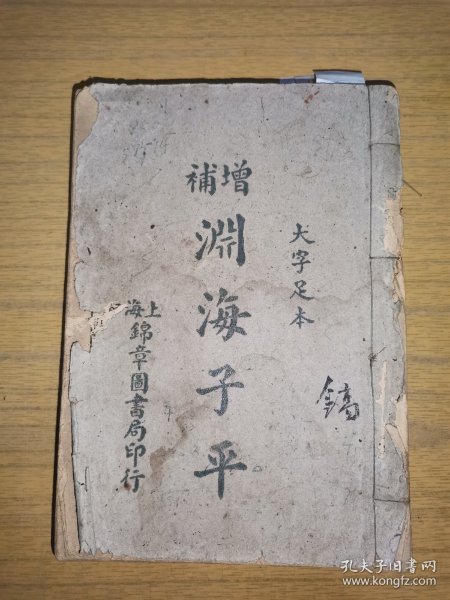 大字足本
增補
淵海子平
上海
錦章圖書局印行
鎬
孔夫子旧书网
www.kongfz.com